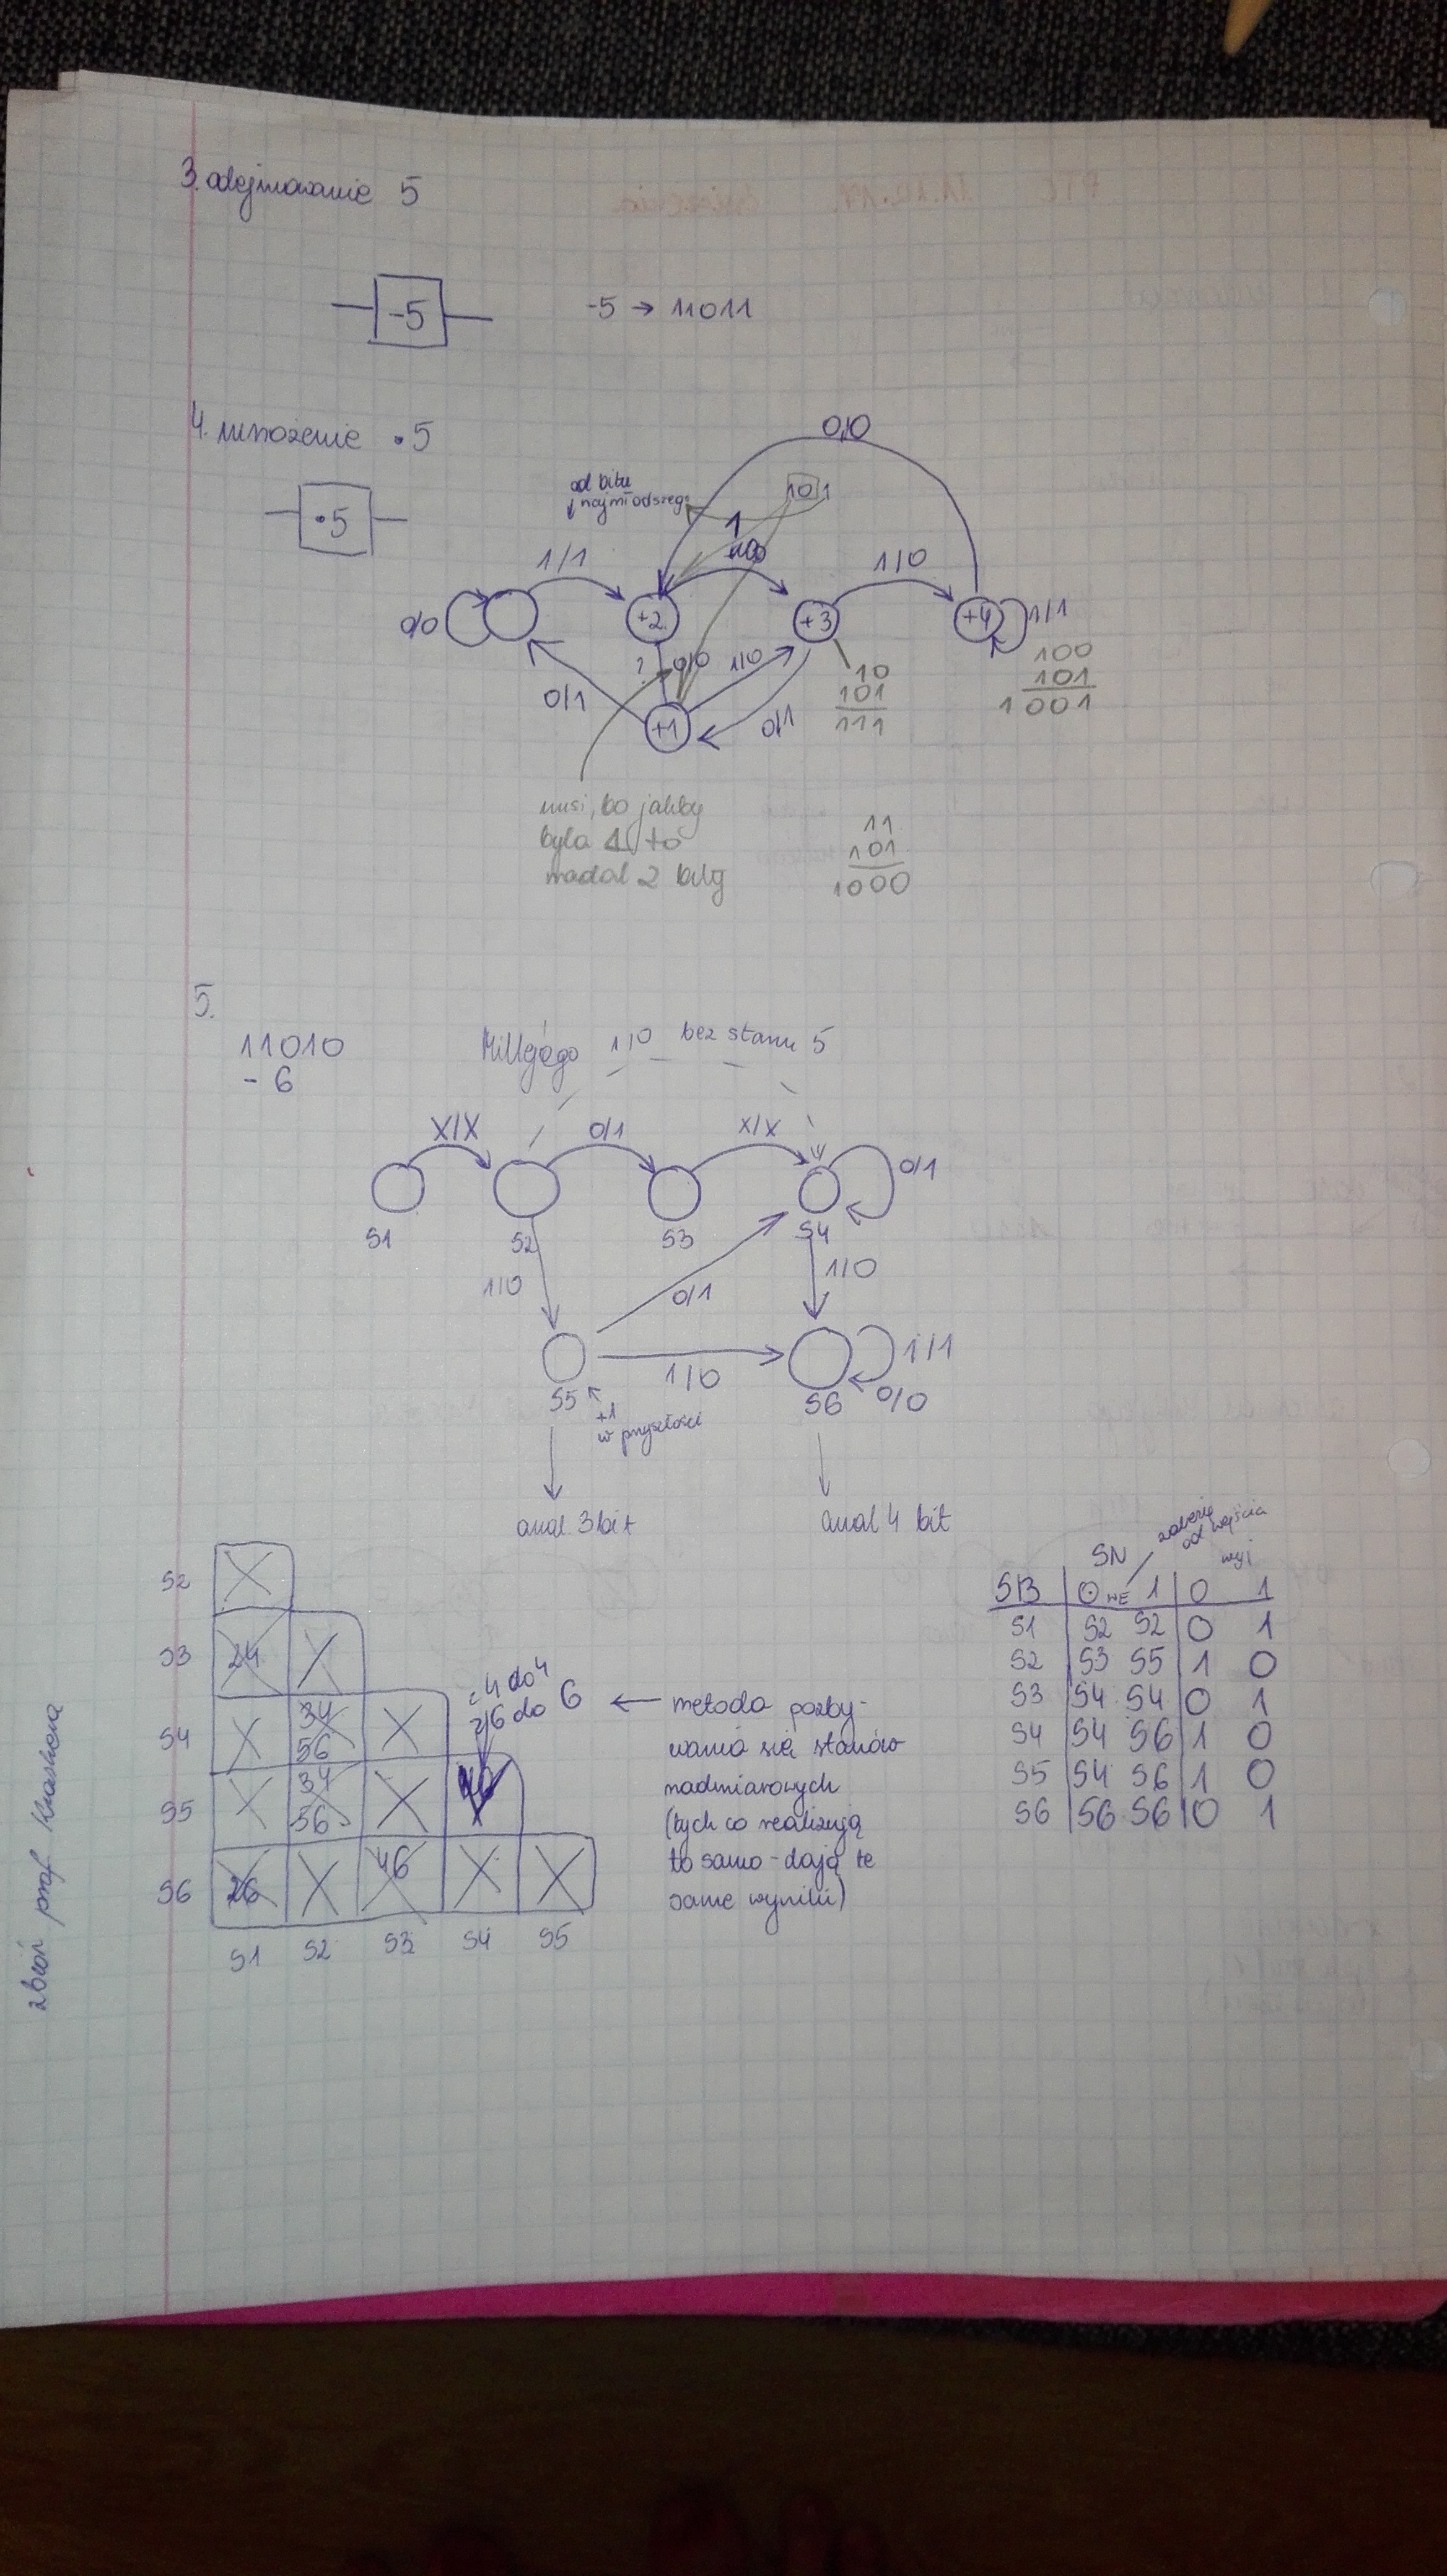 3. odejmowanie 5
-5
-5 → 11011
4. mnożenie • 5
• 5
0/0
od bitu
najmłodszego
101
1
1/1
1/0
0/0
+2
+3
+4
1/1
?
0/0
1/0
0/1
+1
0/1
10
101
111
100
101
1001
musi, bo jakby
była 1, to
nadal 2 bity
11
101
1000
5.
11010
- 6
1/0 bez stanu 5
X/X
0/1
X/X
0/1
S1
S2
S3
S4
1/0
0/1
1/0
1/0
1/1
0/0
S5
+1
w przyszłości
S6
anal. 3 bit
anal 4 bit
S2
S3
24
S4
34
56
S5
34
56
S6
26
46
S1 S2 S3 S4 S5
z 4 do 4
z 6 do 6
← metoda pozby-
wania się stanów
nadmiarowych
(tych co realizują
to samo - dają te
same wyniki)
SN
od wejścia
wyj
SB 0 WE 1 0 1
S1 S2 S2 0 1
S2 S3 S5 1 0
S3 S4 S4 0 1
S4 S4 S6 1 0
S5 S4 S6 1 0
S6 S6 S6 0 1
zbiór prof.